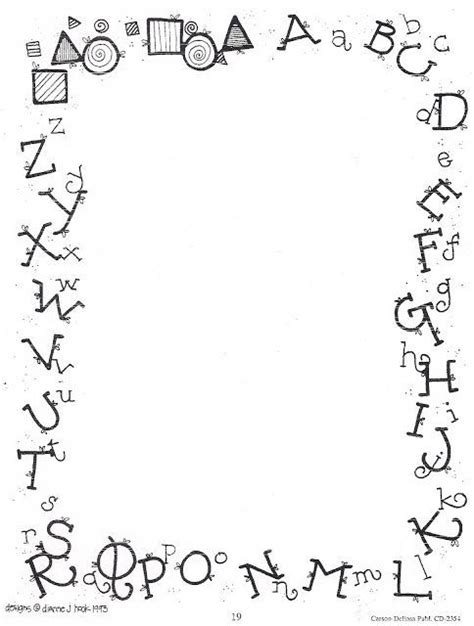 A a B b C c
d D
e
E
F f
g
G
h H
i
I
J j
k
K
l L
m M
n N
o O
p P
q Q
r R
s
S
t
T
u
U
v
V
w
W
x
X
y
Y
z
Z
designs © dianne j hook 1993
19
Carson Dellosa Publ. CD-2354